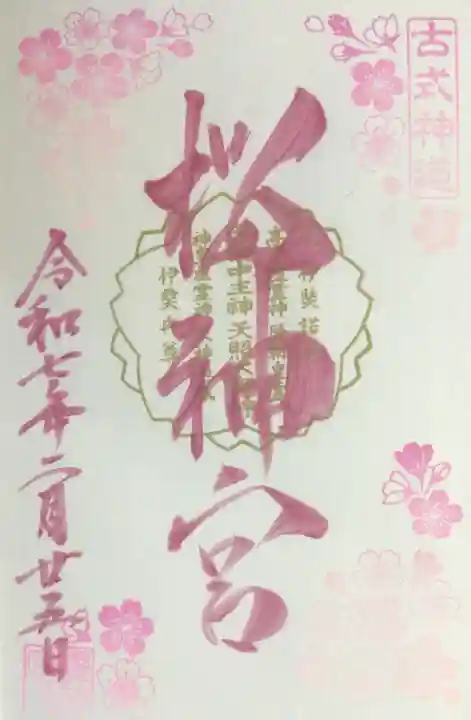 古式神道
伊奘諾
霊神
中主神天照大
霊神
伊奘
桜神宮
令和七年二月廿五日